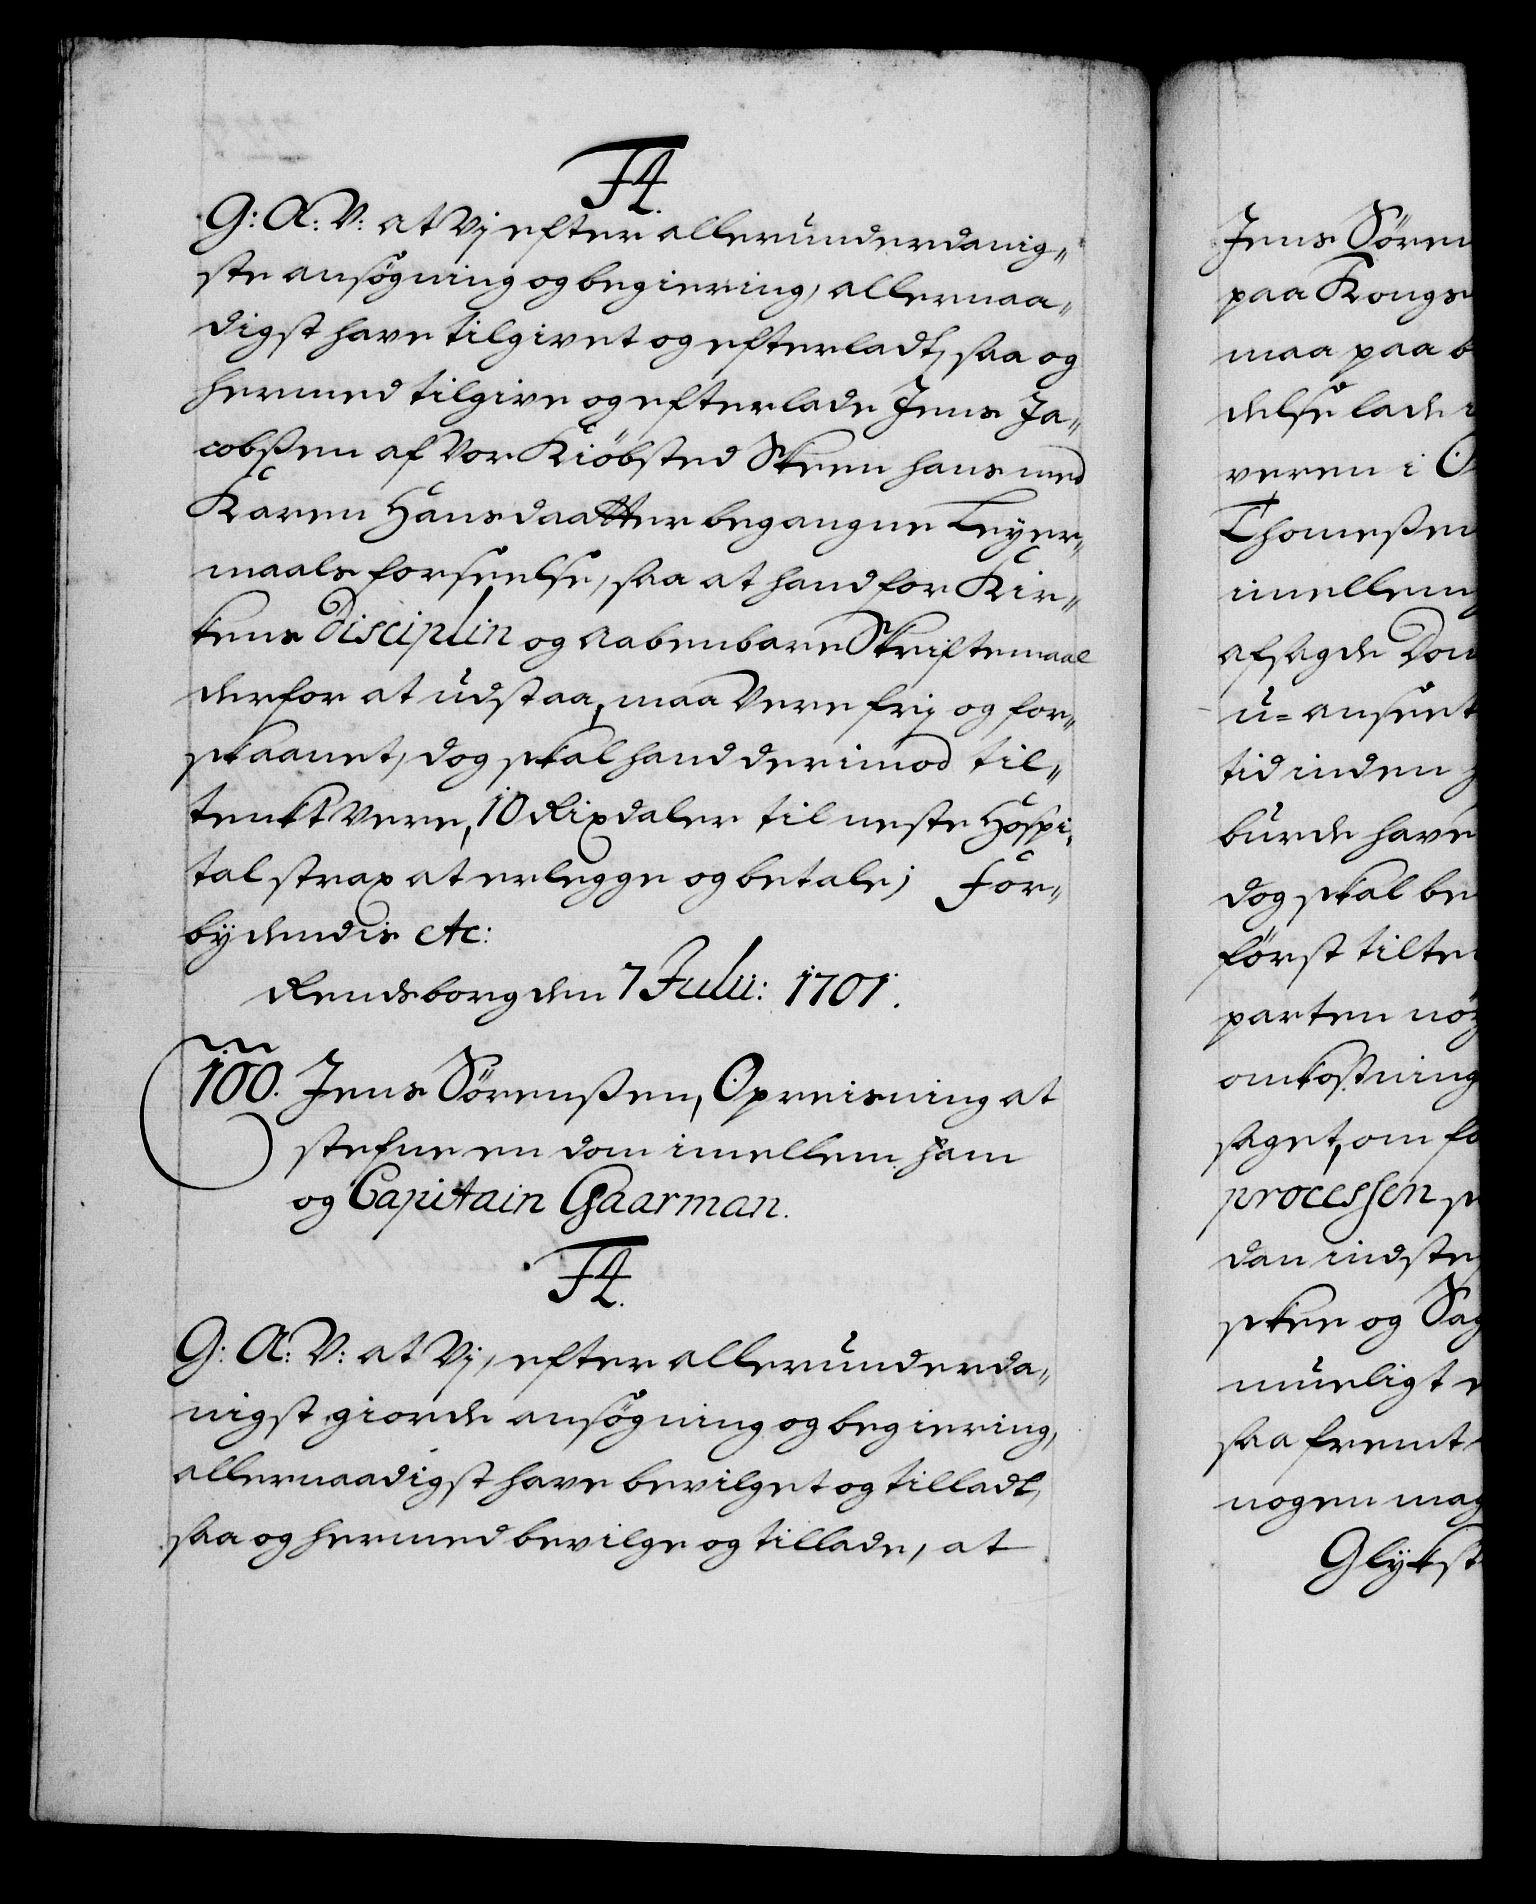 F4.
G: A: V: at Vj efter allerunderdanig„
ste ansøgning og begiering, allernaa„
digst have tilgivet og efterladt, saa og
hermed tilgive og efterlade Jens Ja„
cobßen af Vor Kiöbsted Skeen hans med
Karen Hansdaatter begangne Leyer„
maals forseelse, saa at hand for Kir„
kens Disciplin og aabenbare Skriftemaal
derfor at udstaa, maa Vere frij og for„
skaanet, dog skal hand derimod til„
tenkt Vere, 10 Rixdaler til neste Hospi„
tal strax at erlegge og betale; For„
bydendis etc:
Rendsborg den 7 Julii: 1701.
100. Jens Sörenßen, Opreisning at
stefne en dom imellem ham
og Capitain Gaarman.
F4.
G: A: V: at Vj, efter allerunderda„
nigst giorde ansøgning og begiering,
allernaadigst have bevilget og tilladt,
saa og hermed bevilge og tillade, at
Jens Sören
paa Kongs
maa paa b
delse lade
veren i O
Thomeßen
imellem
afsagde Dom
u= anseet
tid inden
burde have
dog skal be
först tilte
parten nöy
omkostning
saget, om fo
processen s
dan indste
skee og Sag
mueligt
saa fremt
nogen mag
Glykst